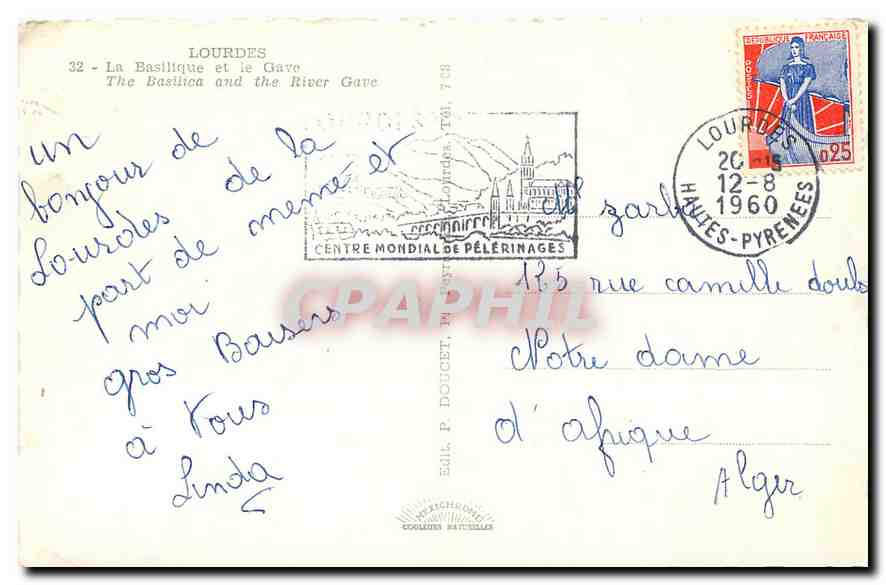 LOURDES
32 - La Basilique et le Gave
The Basilica and the River Gave
un
bonjour de
Lourdes de la
part de memé et
moi
gros Baisers
à Vous
Linda
LOURDES
CENTRE MONDIAL DE PÉLERINAGES
Edit. P. DOUCET, Lourdes, Tél. 7 08
REPUBLIQUE FRANÇAISE
POSTES
0,25
LOURDES
12-8
1960
HAUTES-PYRENEES
zarb
125 rue camille douls
Notre dame
d'afrique
Alger
MEXICHROME
COULEURS NATURELLES
CPAPHIL